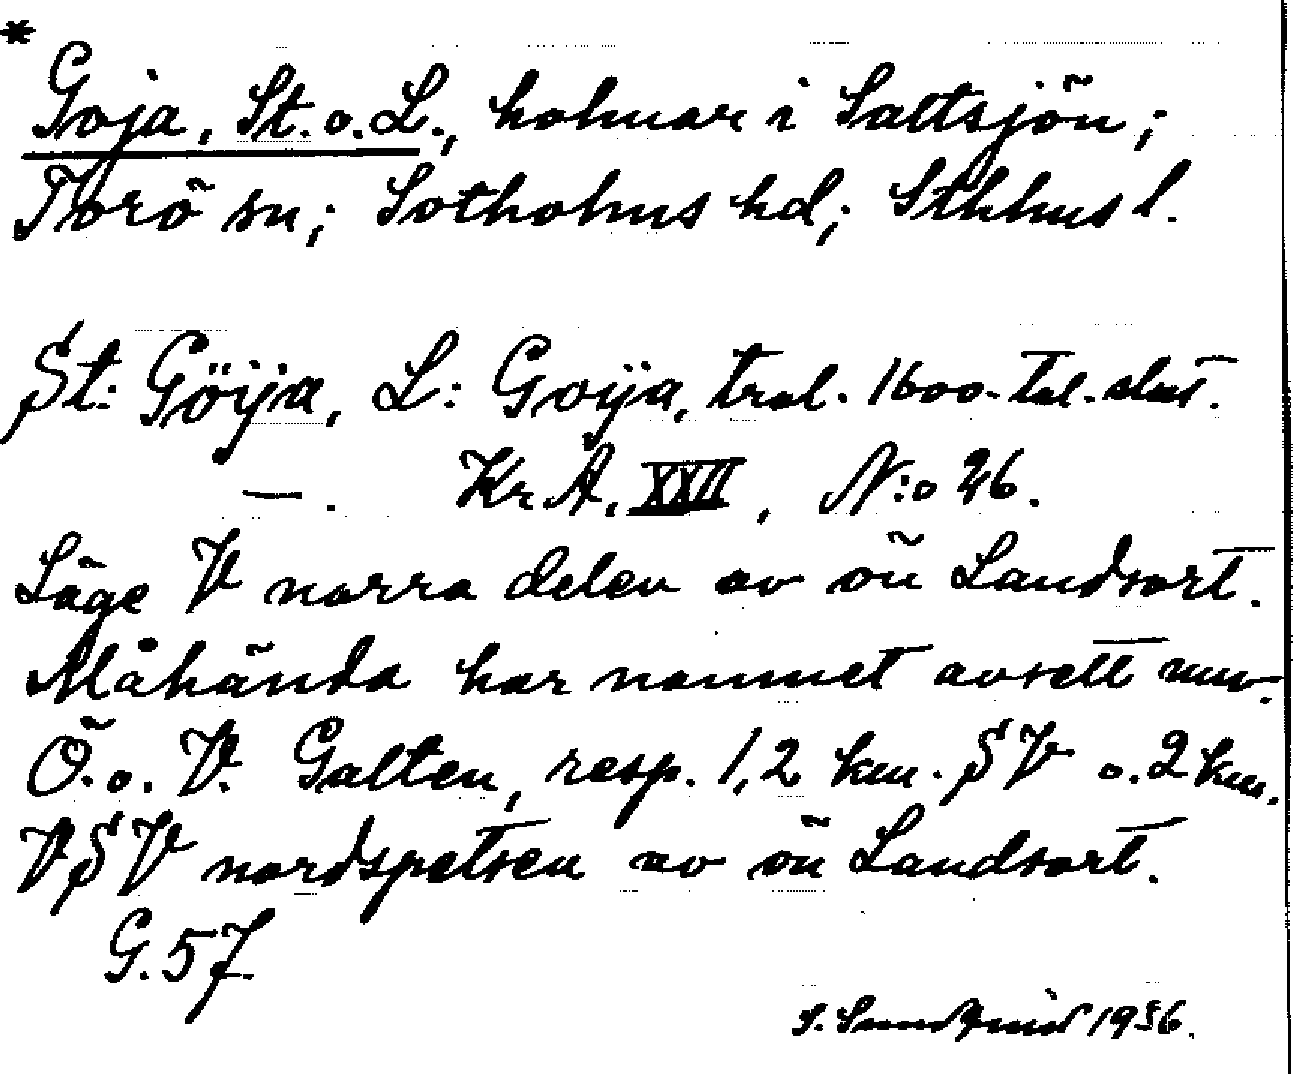 *
Goja, St. o. L., holmar i Saltsjön;
Torö sn; Sotholms hd; Sthlms l.
St: Göija, L: Goija, trol. 1600-tal. slut.
—. Kr A. XXII, N:o 26.
Läge V norra delen av ön Landsort.
Måhända har namnet avsett nuv.
Ö. o. V. Galten, resp. 1,2 km. SV o. 2 km.
VSV nordspetsen av ön Landsort.
G. 57
1936.